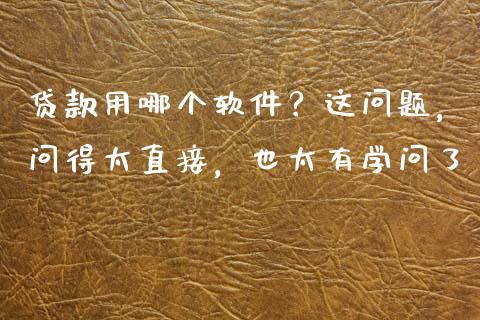 贷款用哪个软件？这问题，
问得太直接，也太有学问了